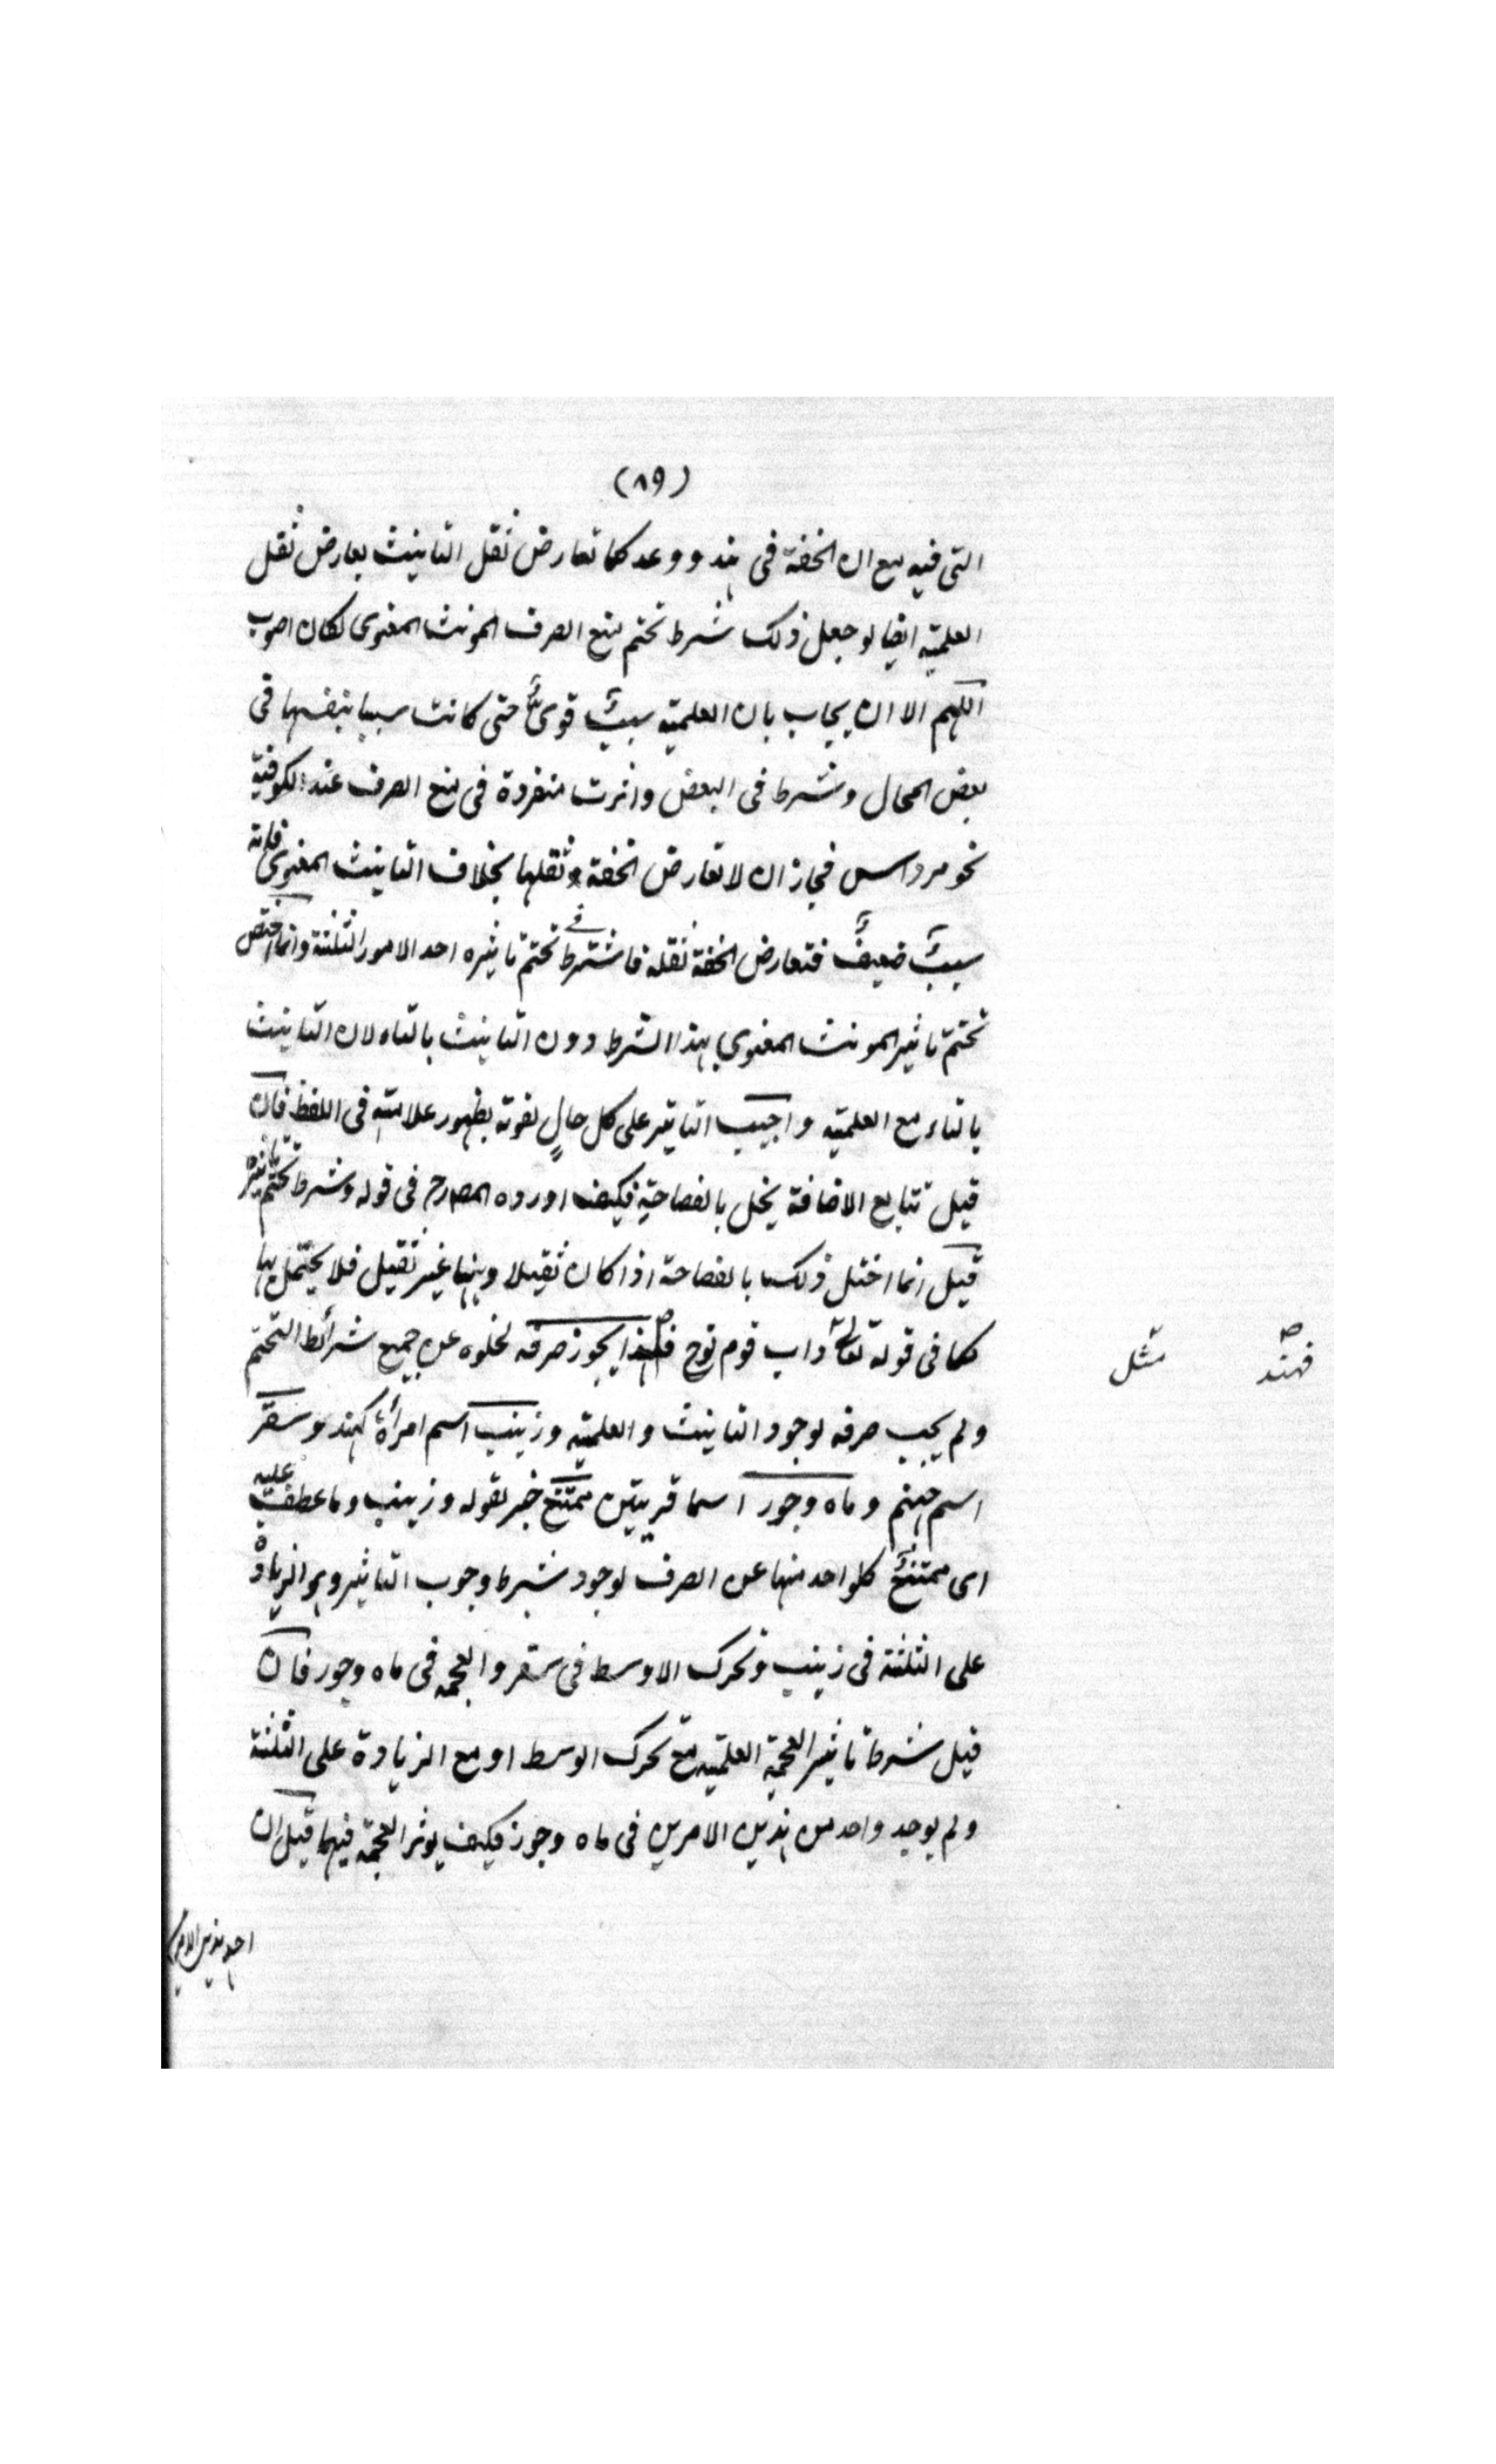 (۸۹)
التى فيه مع ان الخفة فى هند و وعد كما تعارض ثقل التانيث يعارض ثقل
العلميّة ايضا لو جعل ذلك شرط تحتم منع الصرف المونث المعنوى لكان اصوب
اللهم الا ان يجاب بان العلمية سببٌ قوىٌّ حتى كانت سببا بنفسها فى
بعض المحال وشرطا فى البعض واثرت منفردة فى منع الصرف عند الكوفيّة
نحو مرداس فجاز ان لا تعارض الخفة وثقلها بخلاف التانيث المعنوى فانه
سببٌ ضعيفٌ فتعارض الخفة ثقله فاشترط فى تحتم تاثيره احد الامور الثلثة وانما اختص
تحتّم تاثير المونث المعنوى بهذا الشرط دون التانيث بالتاء لان التانيث
بالتاء مع العلميّه واجيب التاثير على كل حالٍ لقوته بظهور علامته فى اللفظ فان
قيل تتابع الاضافة يخل بالفصاحة فكيف اورده المصرح فى قوله وشرط تحتم تاثيره
قيل انما اختل ذلك بالفصاحة اذا كان ثقيلا وههنا غير ثقيل فلا يختل بها
كما فى قوله تعالى داب قوم نوح فهند يجوز صرفه لخلوه عن جميع شرائط التحتم
ولم يجب صرفه لوجود التانيث والعلميّه وزينب اسم امراة كهند وسقر
اسم جهنم وماه وجور اسما قريتين ممتنع خبر لقوله وزينب وما عطف عليه
اى ممتنعٌ كلواحد منها عن الصرف لوجود شرط وجوب التاثير وهو الزيادة
على الثلثة فى زينب وتحرك الاوسط فى سقر والعجمه فى ماه وجور فان
قيل شرط تاثير العجمة العلميّه مع تحرك الوسط او مع الزيادة على الثلثة
ولم يوجد واحد من هذين الامرين فى ماه وجور فكيف يوثر العجمة فيهما قيل ان
فهند
مثل
احد هذين الامرين